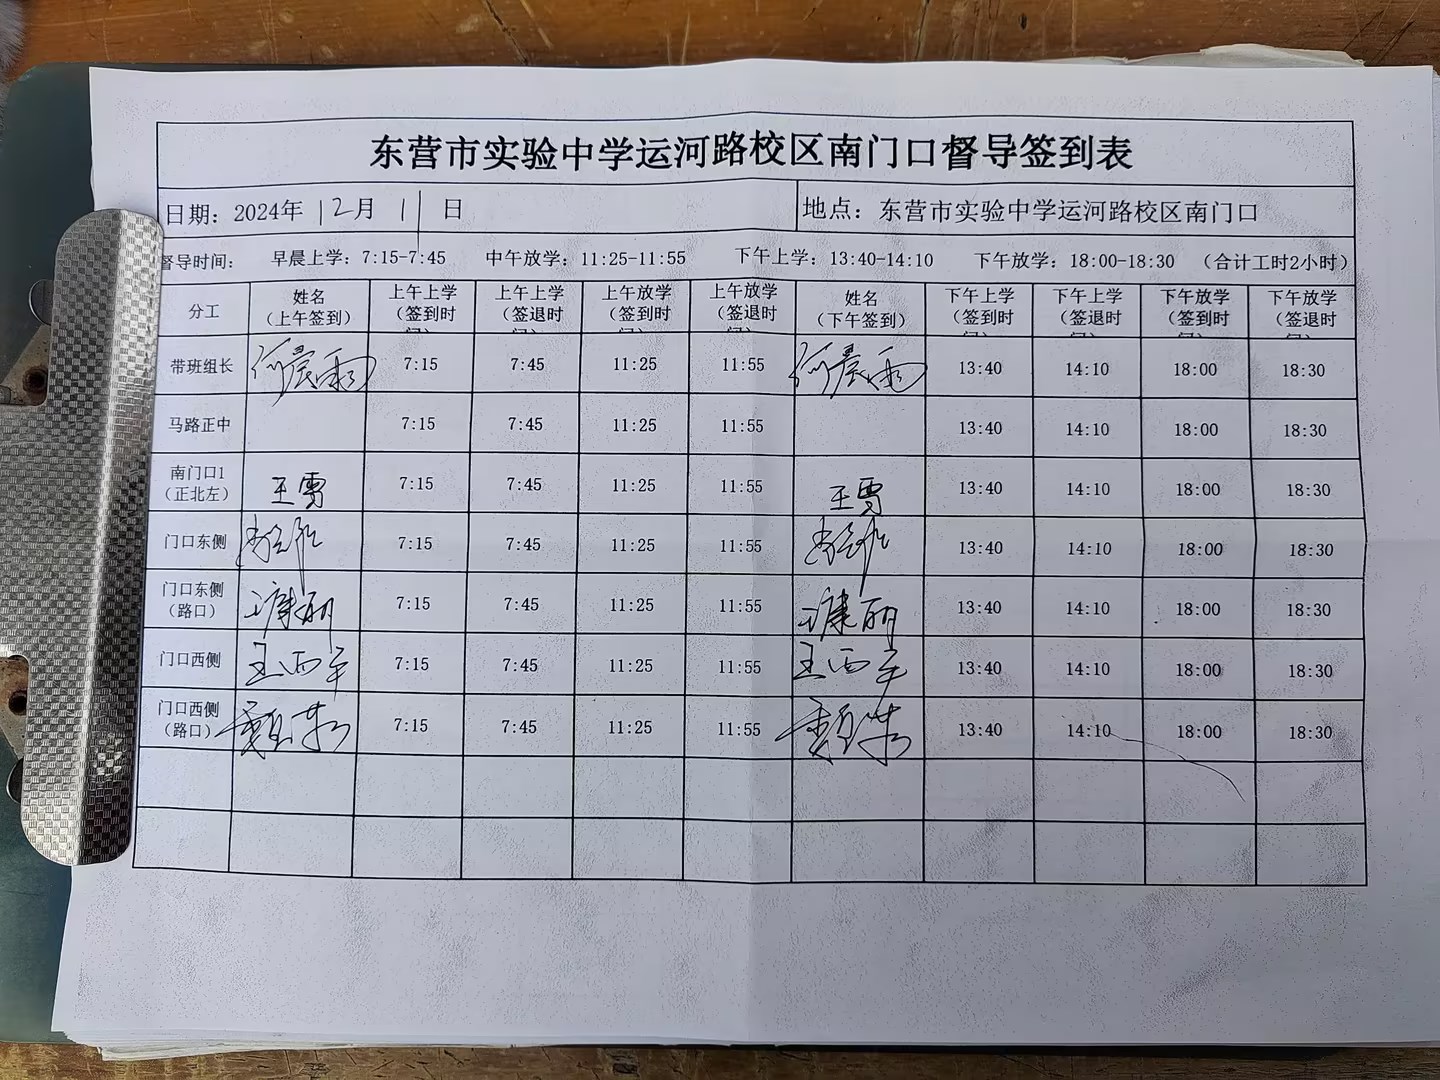 东营市实验中学运河路校区南门口督导签到表
日期：2024年 12月 11 日 地点：东营市实验中学运河路校区南门口
督导时间： 早晨上学：7:15-7:45 中午放学：11:25-11:55 下午上学：13:40-14:10 下午放学：18:00-18:30 （合计工时2小时）
分工 姓名 上午上学 上午上学 上午放学 上午放学 姓名 下午上学 下午上学 下午放学 下午放学
（上午签到） （签到时 （签退时 （签到时 （签退时 （下午签到） （签到时 （签退时 （签到时 （签退时
间） 间） 间） 间） 间） 间） 间） 间）
带班组长 何晨雨 7:15 7:45 11:25 11:55 何晨雨 13:40 14:10 18:00 18:30
马路正中 7:15 7:45 11:25 11:55 13:40 14:10 18:00 18:30
南门口1
（正北左） 王雪 7:15 7:45 11:25 11:55 王雪 13:40 14:10 18:00 18:30
门口东侧 7:15 7:45 11:25 11:55 13:40 14:10 18:00 18:30
门口东侧
（路口） 7:15 7:45 11:25 11:55 13:40 14:10 18:00 18:30
门口西侧 王西平 7:15 7:45 11:25 11:55 王西平 13:40 14:10 18:00 18:30
门口西侧
（路口） 7:15 7:45 11:25 11:55 13:40 14:10 18:00 18:30